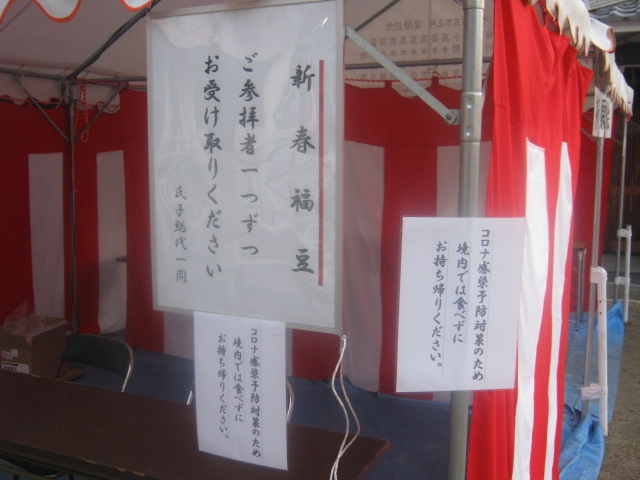 新春福豆
ご参拝者一つずつ
お受け取りください
氏子総代一同
コロナ感染予防対策のため
境内では食べずに
お持ち帰りください。
コロナ感染予防対策のため
境内では食べずに
お持ち帰りください。